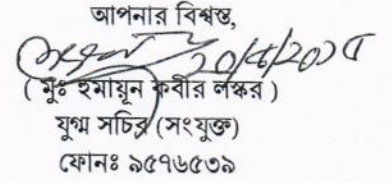 আপনার বিশ্বস্ত,
২০/৪/২০১৫
( মুঃ হুমায়ুন কবীর লস্কর )
যুগ্ম সচিব (সংযুক্ত)
ফোনঃ ৯৫৭৬৫৩৯